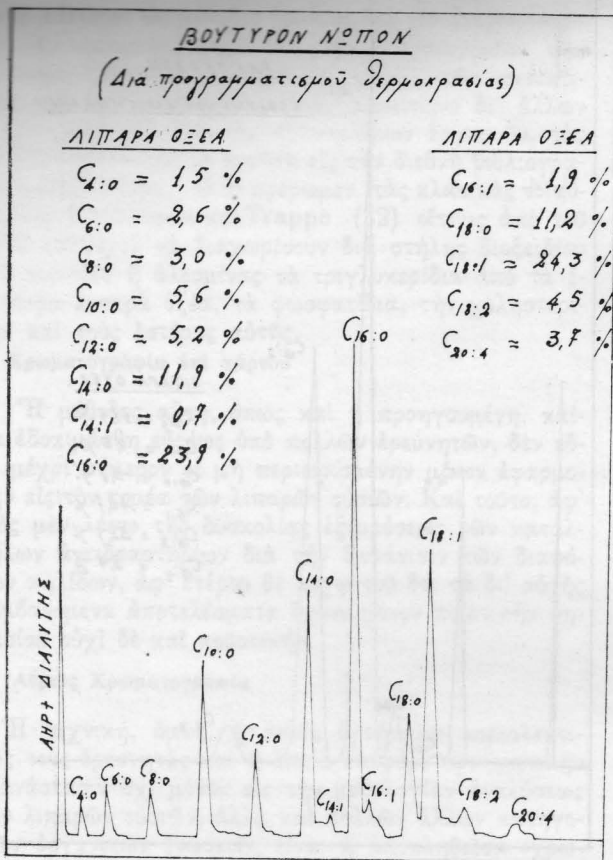 ΒΟΥΤΥΡΟΝ ΝΩΠΟΝ
(Διά προγραμματισμοῦ θερμοκρασίας)
ΛΙΠΑΡΑ ΟΞΕΑ
C4:0 = 1,5 %
C6:0 = 2,6 %
C8:0 = 3,0 %
C10:0 =
C12:0 = 5,2 %
C14:0 = 11,9 %
C14:1 = 0,7 %
C16:0 = 23,9 %
ΛΙΠΑΡΑ ΟΞΕΑ
C16:1 = 1,9 %
C18:0 = 11,2 %
C18:1 = 24,3 %
C18:2 = 4,5 %
C20:4 = 3,7 %
ΑΗΡ+ ΔΙΑΛΥΤΗΣ
C4:0
C6:0
C8:0
C10:0
C12:0
C14:0
C14:1
C16:0
C16:1
C18:0
C18:1
C18:2
C20:4